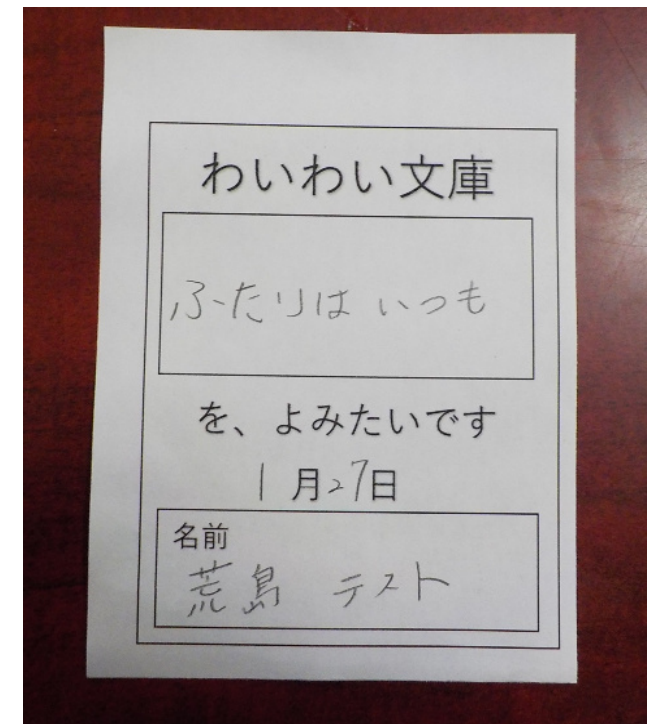 わいわい文庫
ふたりは いつも
を、よみたいです
1月27日
名前
荒島 テスト